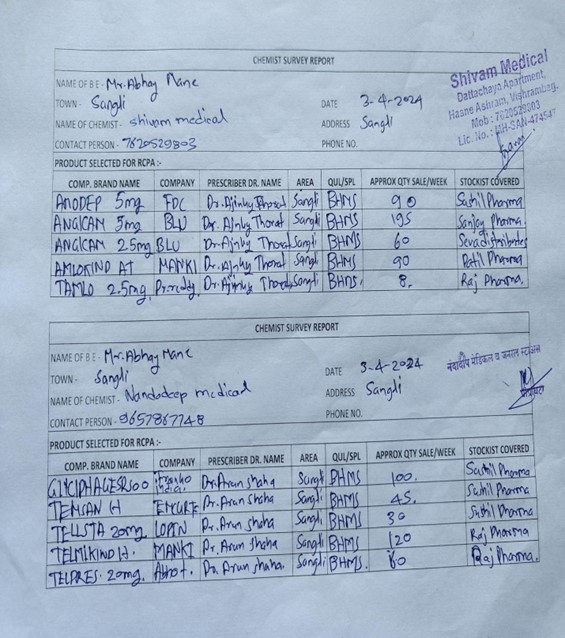 CHEMIST SURVEY REPORT
NAME OF B E - Mr. Abhay Mane
TOWN - Sangli DATE 3-4-2024
NAME OF CHEMIST - shivam medical ADDRESS Sangli
CONTACT PERSON - 7620529803 PHONE NO.
Shivam Medical
Dattachaya Apartment,
Hasne Ashram, Vishrambag,
Mob : 7620529803
Lic. No. : MH-SAN-474547
PRODUCT SELECTED FOR RCPA :-
COMP. BRAND NAME COMPANY PRESCRIBER DR. NAME AREA QUL/SPL APPROX QTY SALE/WEEK STOCKIST COVERED
AMODEP 5mg FDC Dr. Ajinky Thorat Sangli BHMS 90 Sushil Pharma
ANGICAM 5mg BLU Dr. Ajinky Thorat Sangli BHMS 195 Sanjay Pharma.
ANGICAM 2.5mg BLU Dr. Ajinky Thorat Sangli BHMS 60 Seva distributes
AMLOKIND AT MANKI Dr. Ajinky Thorat Sangli BHMS 90 Patil Pharma
TAMLO 2.5mg. Dr. Ajinky Thorat Sangli BHMS. 8. Raj Pharma.
CHEMIST SURVEY REPORT
NAME OF B E - Mr. Abhay Mane
TOWN - Sangli DATE 3-4-2024
NAME OF CHEMIST - Nandadeep medical ADDRESS Sangli
CONTACT PERSON - 9657867748 PHONE NO.
नंदादीप मेडिकल व जनरल स्टोअर्स
PRODUCT SELECTED FOR RCPA :-
COMP. BRAND NAME COMPANY PRESCRIBER DR. NAME AREA QUL/SPL APPROX QTY SALE/WEEK STOCKIST COVERED
GLYCIPHAGE SR 500 Dr. Arun shaha Sangli BHMS 100. Sushil Pharma
TEMSAN H EMCURE Dr. Arun Shaha Sangli BHMS 45. Sushil Pharma
TELLSTA 20mg. LUPIN Dr. Arun Shaha Sangli BHMS 30 Sushil Pharma
TELMIKIND H. MANKI Dr. Arun Shaha Sangli BHMS 120 Raj Pharma
TELPRES. 20mg. Abbot. Dr. Arun shaha. Sangli BHMS. 60 Raj Pharma.